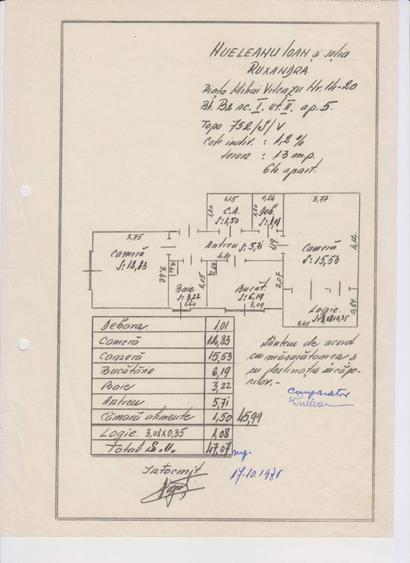 HUELEANU IOAN și soția
RUXANDRA
Piața Mihai Viteazu Nr. 14-20
Bl. B2 sc. I. et. II. ap. 5.
Topo 752/J/V
Cote indiv. : 1,2 %
teren : 13 mp.
64 apart.
1,25
C.A.
S: 1,50
Deb.
3,77
Cameră
S: 15,53
3,75
Cameră
S: 12,83
3,42
Antreu S: 5,71
4,12
2,05
2,07
Baie
S: 3,22
Bucat.
S: 6,19
3,09
Logie
0,84
Debara 1,01
Cameră 12,83
Cameră 15,53
Bucătărie 6,19
Baie 3,22
Antreu 5,71
Cămară alimente 1,50 45,99
Logie 3,08x0,35 1,08
Total S.U. 47,07 mp.
Sîntem de acord
cu măsurătoarea și
cu destinația încăpe-
rilor.-
Cumpărător
Întocmit